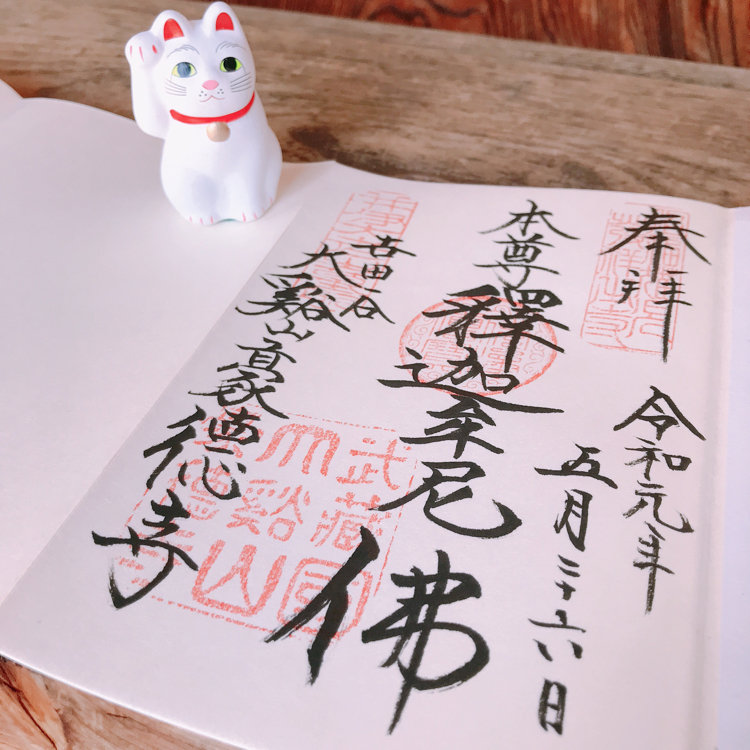 奉拝
令和元年
五月二十六日
本尊
釋迦牟尼佛
世田谷
大谿山豪德寺
武藏國
大谿山
豪德寺